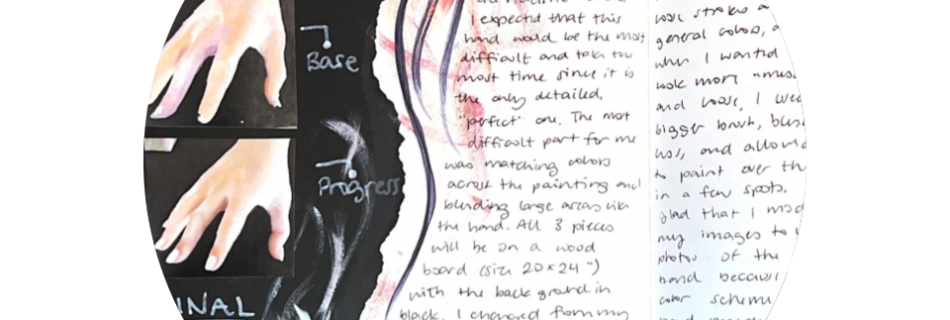 Base
Progress
INAL
I expected that this
hand would be the most
difficult and take the
most time since it is
the only detailed,
"perfect" one. The most
difficult part for me
was matching colors
across the painting and
blending large areas like
the hand. All 3 pieces
will be on a wood
board (size 20x24")
with the background in
black. I changed from my
general colors, a
when I wanted
look more "mes
and loose, I use
bigger brush,
and allow
to paint over th
in a few spots.
glad that I
my images to
photos of the
hand becaus
color scheme